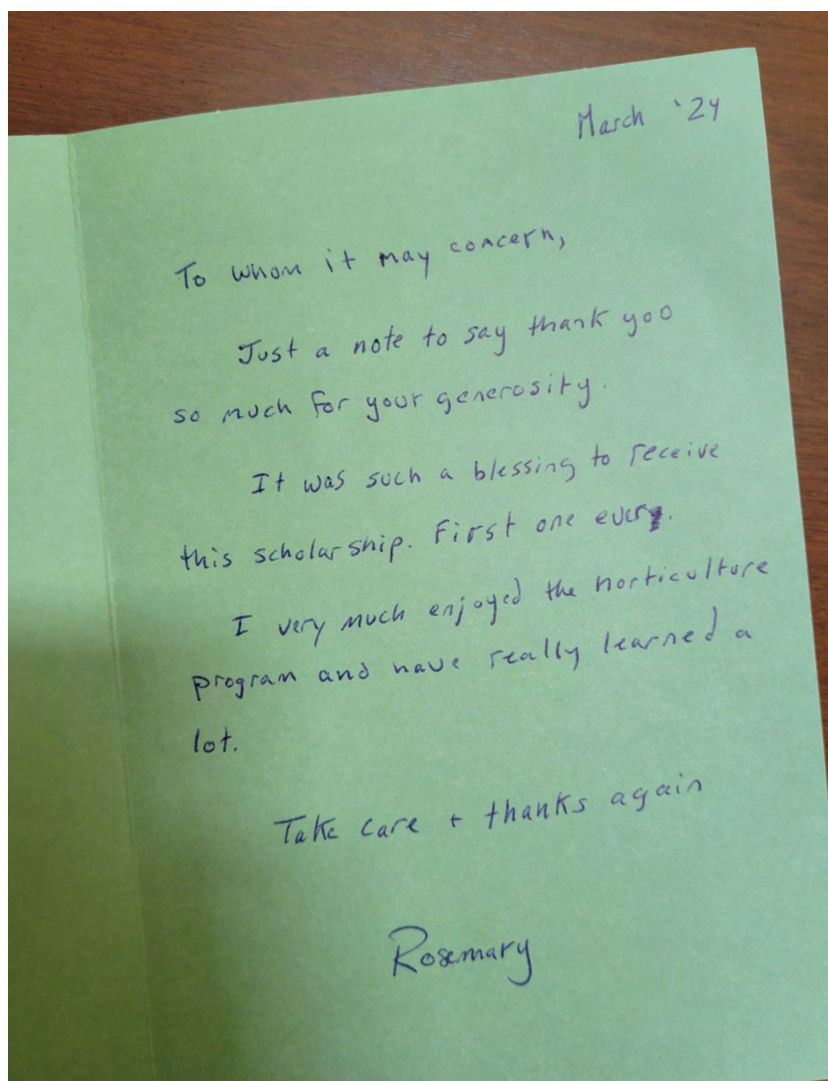 March '24
To whom it may concern,
Just a note to say thank you
so much for your generosity.
It was such a blessing to receive
this scholarship. First one ever.
I very much enjoyed the horticulture
program and have really learned a
lot.
Take care + thanks again
Rosemary